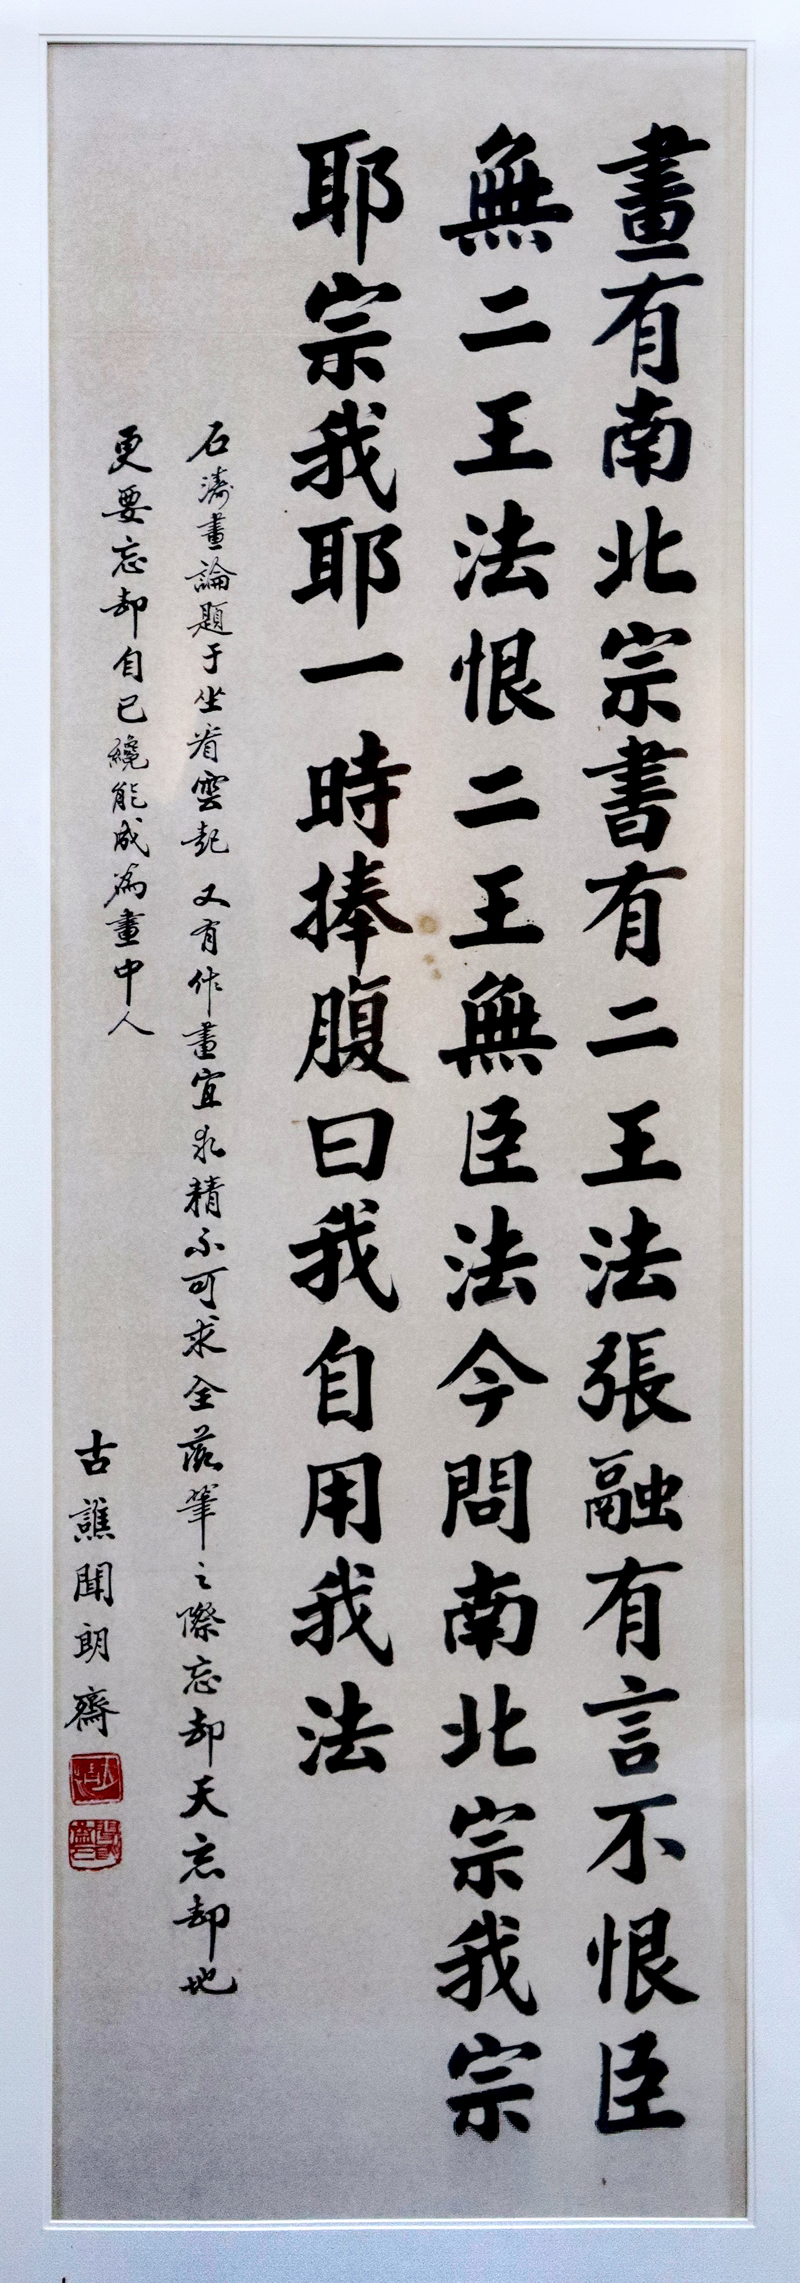 畫有南北宗書有二王法張融有言不恨臣
無二王法恨二王無臣法今問南北宗我宗
耶宗我耶一時捧腹曰我自用我法
石濤畫論題于坐看雲起又有作畫宜求精不可求全落筆之際忘却天忘却地
更要忘却自己纔能成為畫中人
古譙聞朗齋